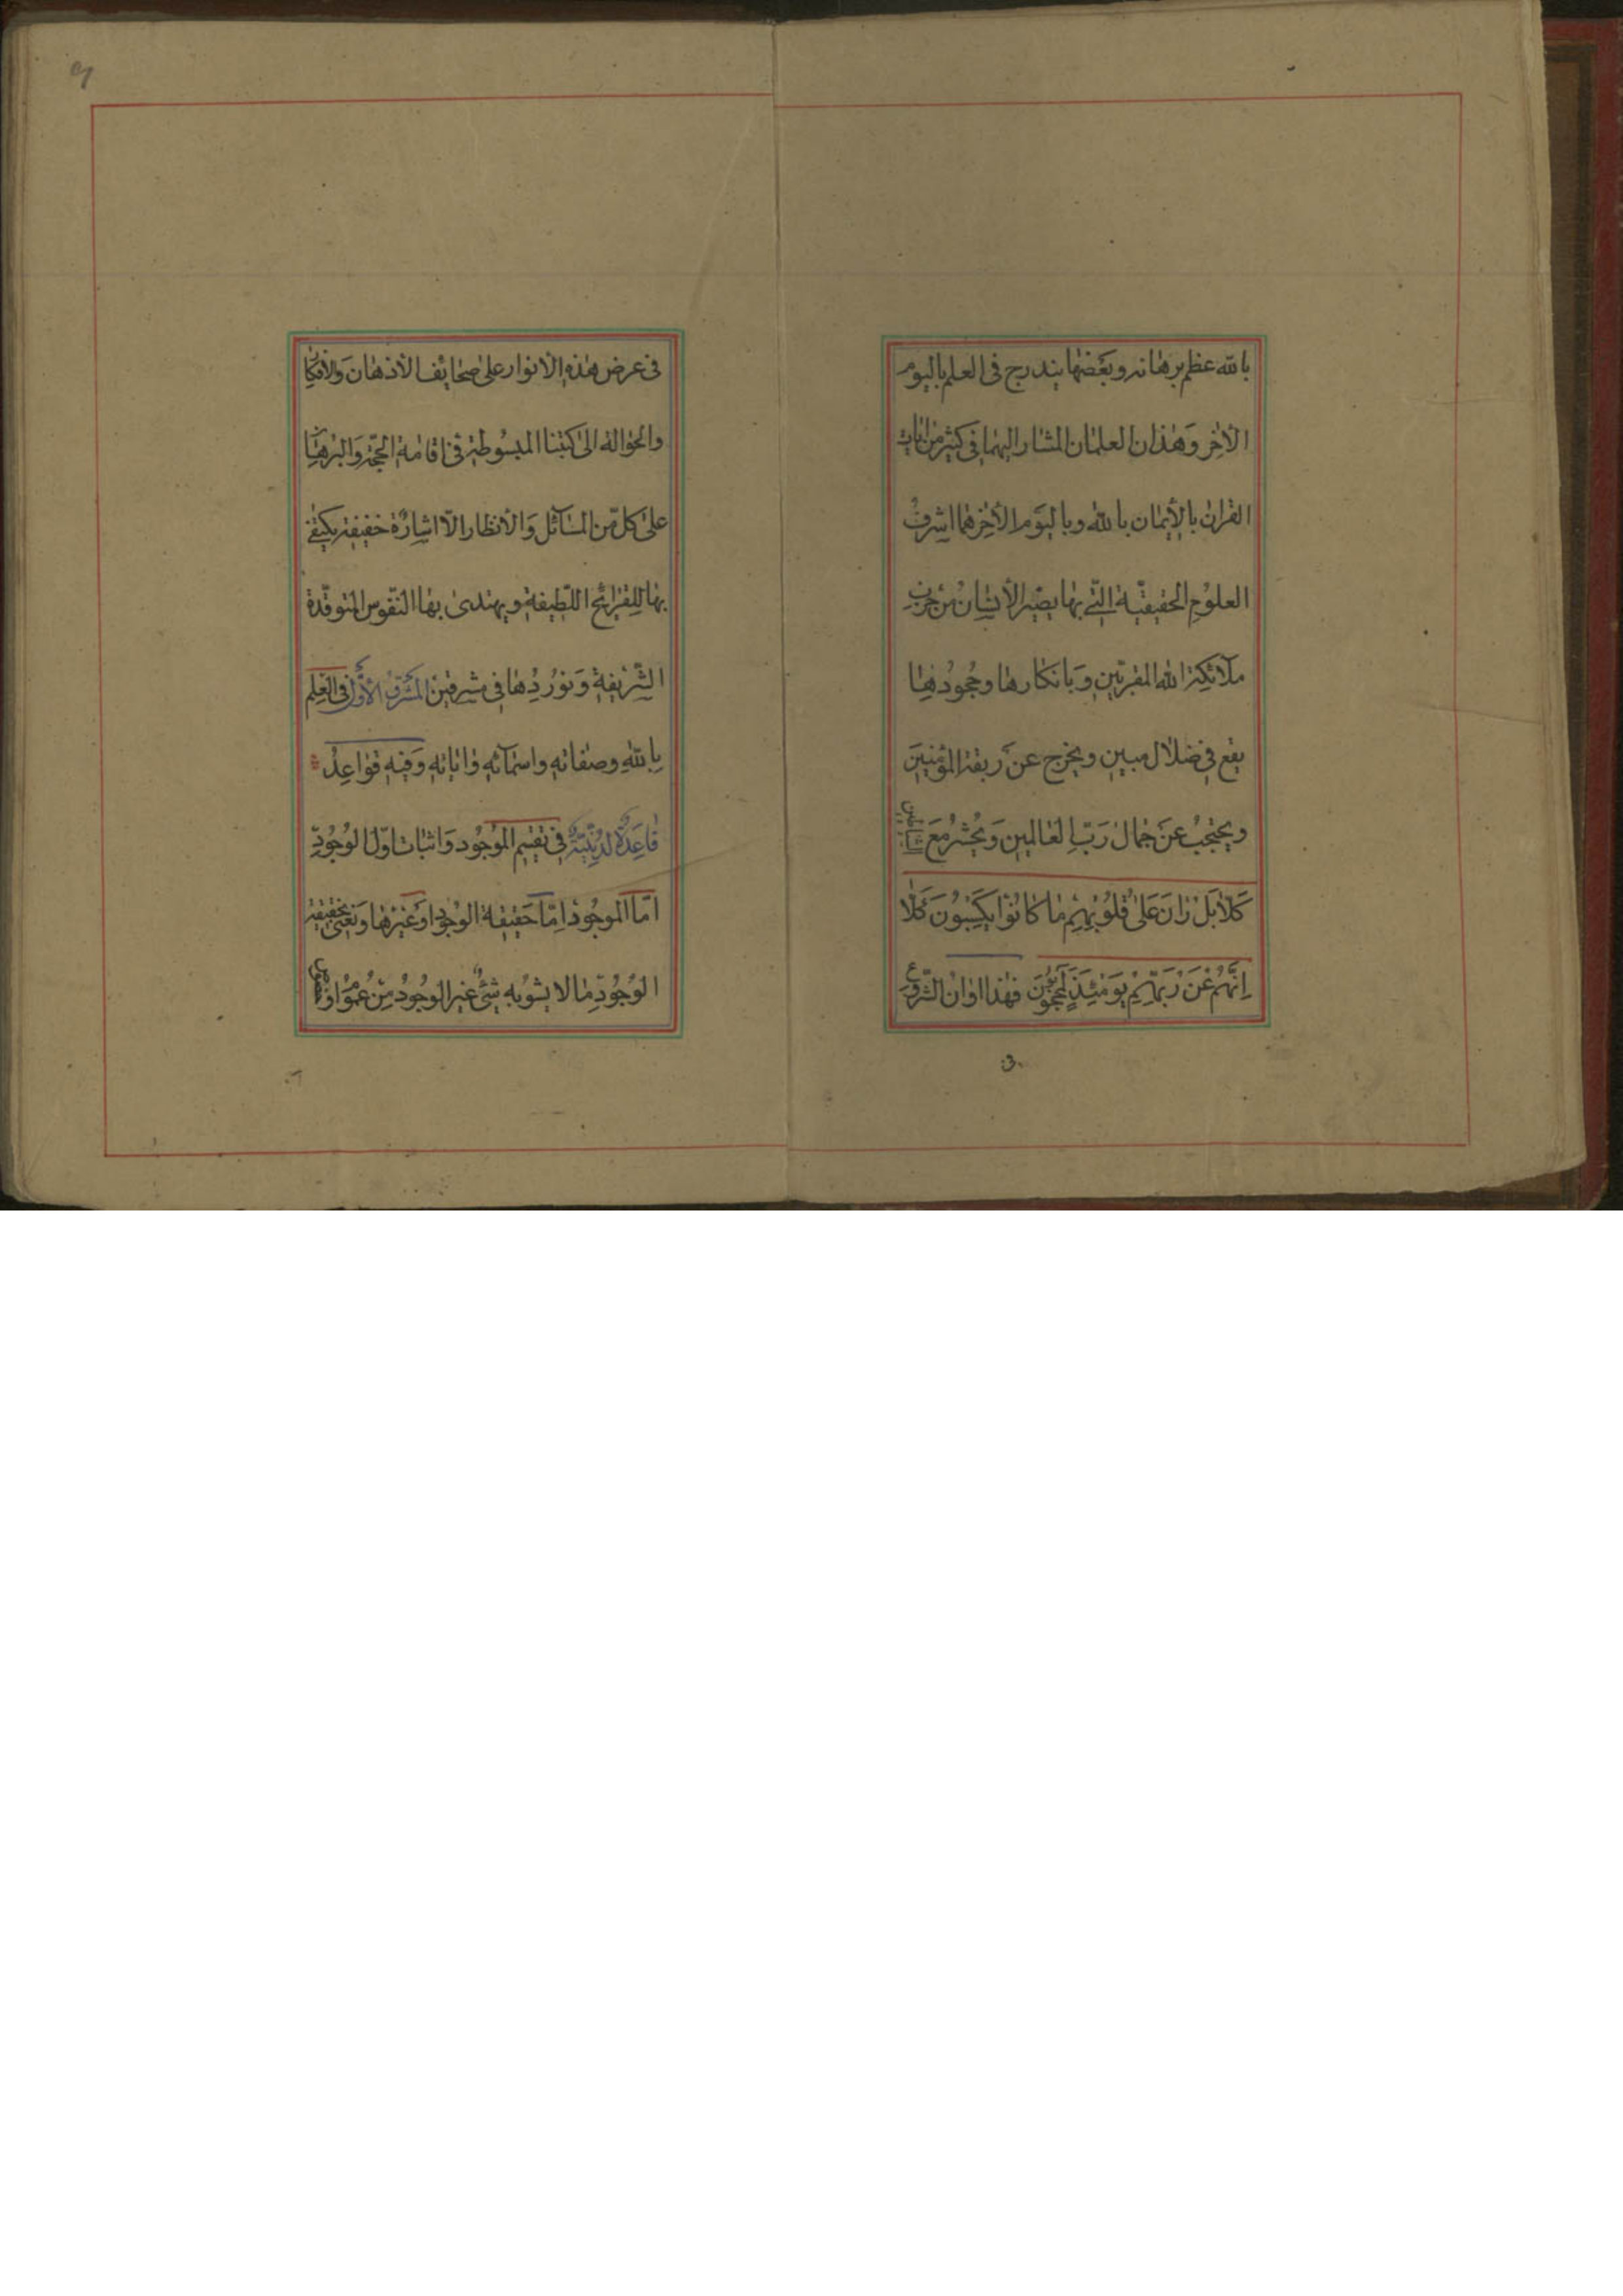 بالله عظم برهانه وبعضها يندرج فى العلم باليوم
الاخر وهذان العلمان المشار اليهما فى كثير من ايات
القران بالايمان بالله وباليوم الاخر هما اشرف
العلوم الحقيقية التى بها يصير الانسان من حزب
ملآئكة الله المقربين وبانكارها وجحودها
يقع فى ضلال مبين ويخرج عن ربقة المؤمنين
ويحتجب عن جمال رب العالمين ويحشر مع الشياطين
كلا بل ران على قلوبهم ما كانوا يكسبون كلا
انهم عن ربهم يومئذ لمحجوبون فهذا اوان الشروع
فى عرض هذه الانوار على صحايف الاذهان والافكار
والحوالة الى كتبنا المبسوطة فى اقامة الحجة والبرهان
على كل من المسآئل والانظار الا اشارة خفيفة يكتفى
بها للقرائح اللطيفة ويهتدى بها النفوس المتوقدة
الشريفة ونوردها فى مشرقين المشرق الاول فى العلم
بالله وصفاته واسمآئه واياته وفيه قواعد
قاعدة لدنية فى تقسيم الموجود واثبات اول الوجود
اما الموجود اما حقيقة الوجود او غيرها ونعنى بحقيقة
الوجود ما لا يشوبه شئ غير الوجود من عموم او خصوص